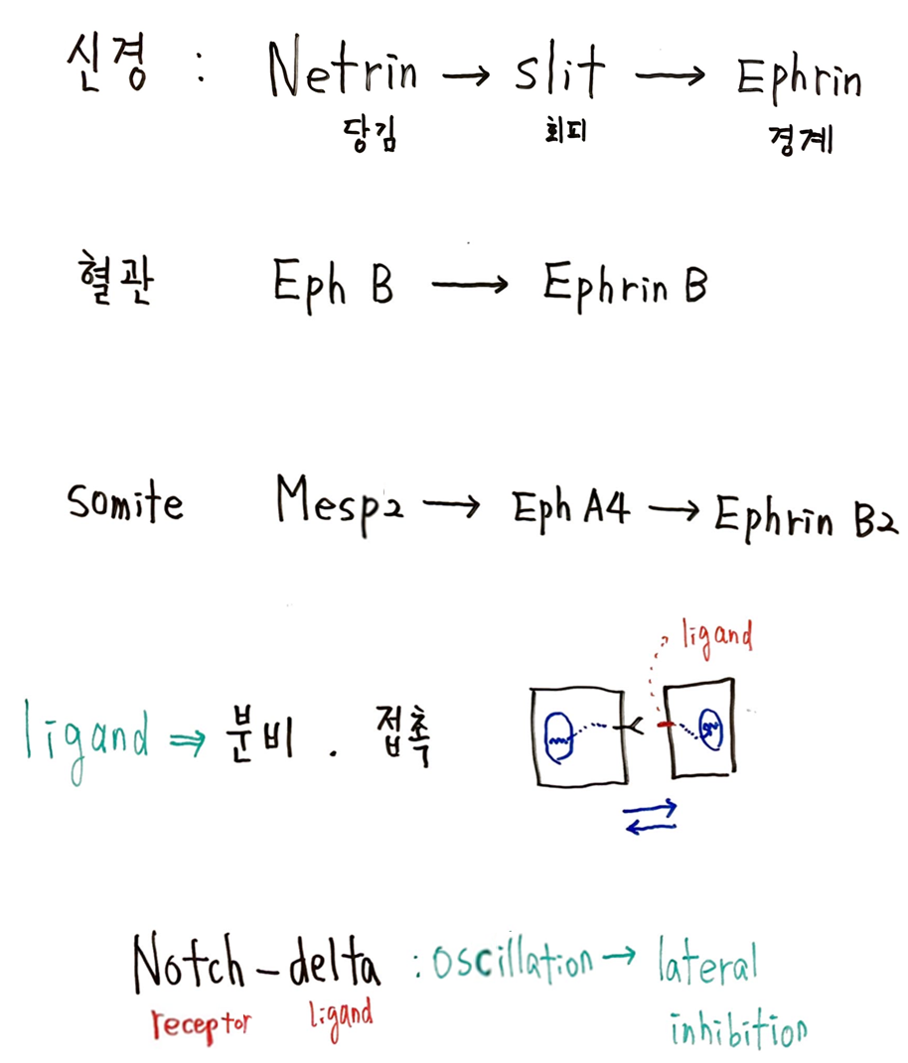 신경 : Netrin → slit → Ephrin
당김 회피 경계
혈관 Eph B → Ephrin B
somite Mesp2 → Eph A4 → Ephrin B2
ligand
ligand ⇒ 분비 . 접촉
Notch - delta : oscillation → lateral
receptor ligand inhibition